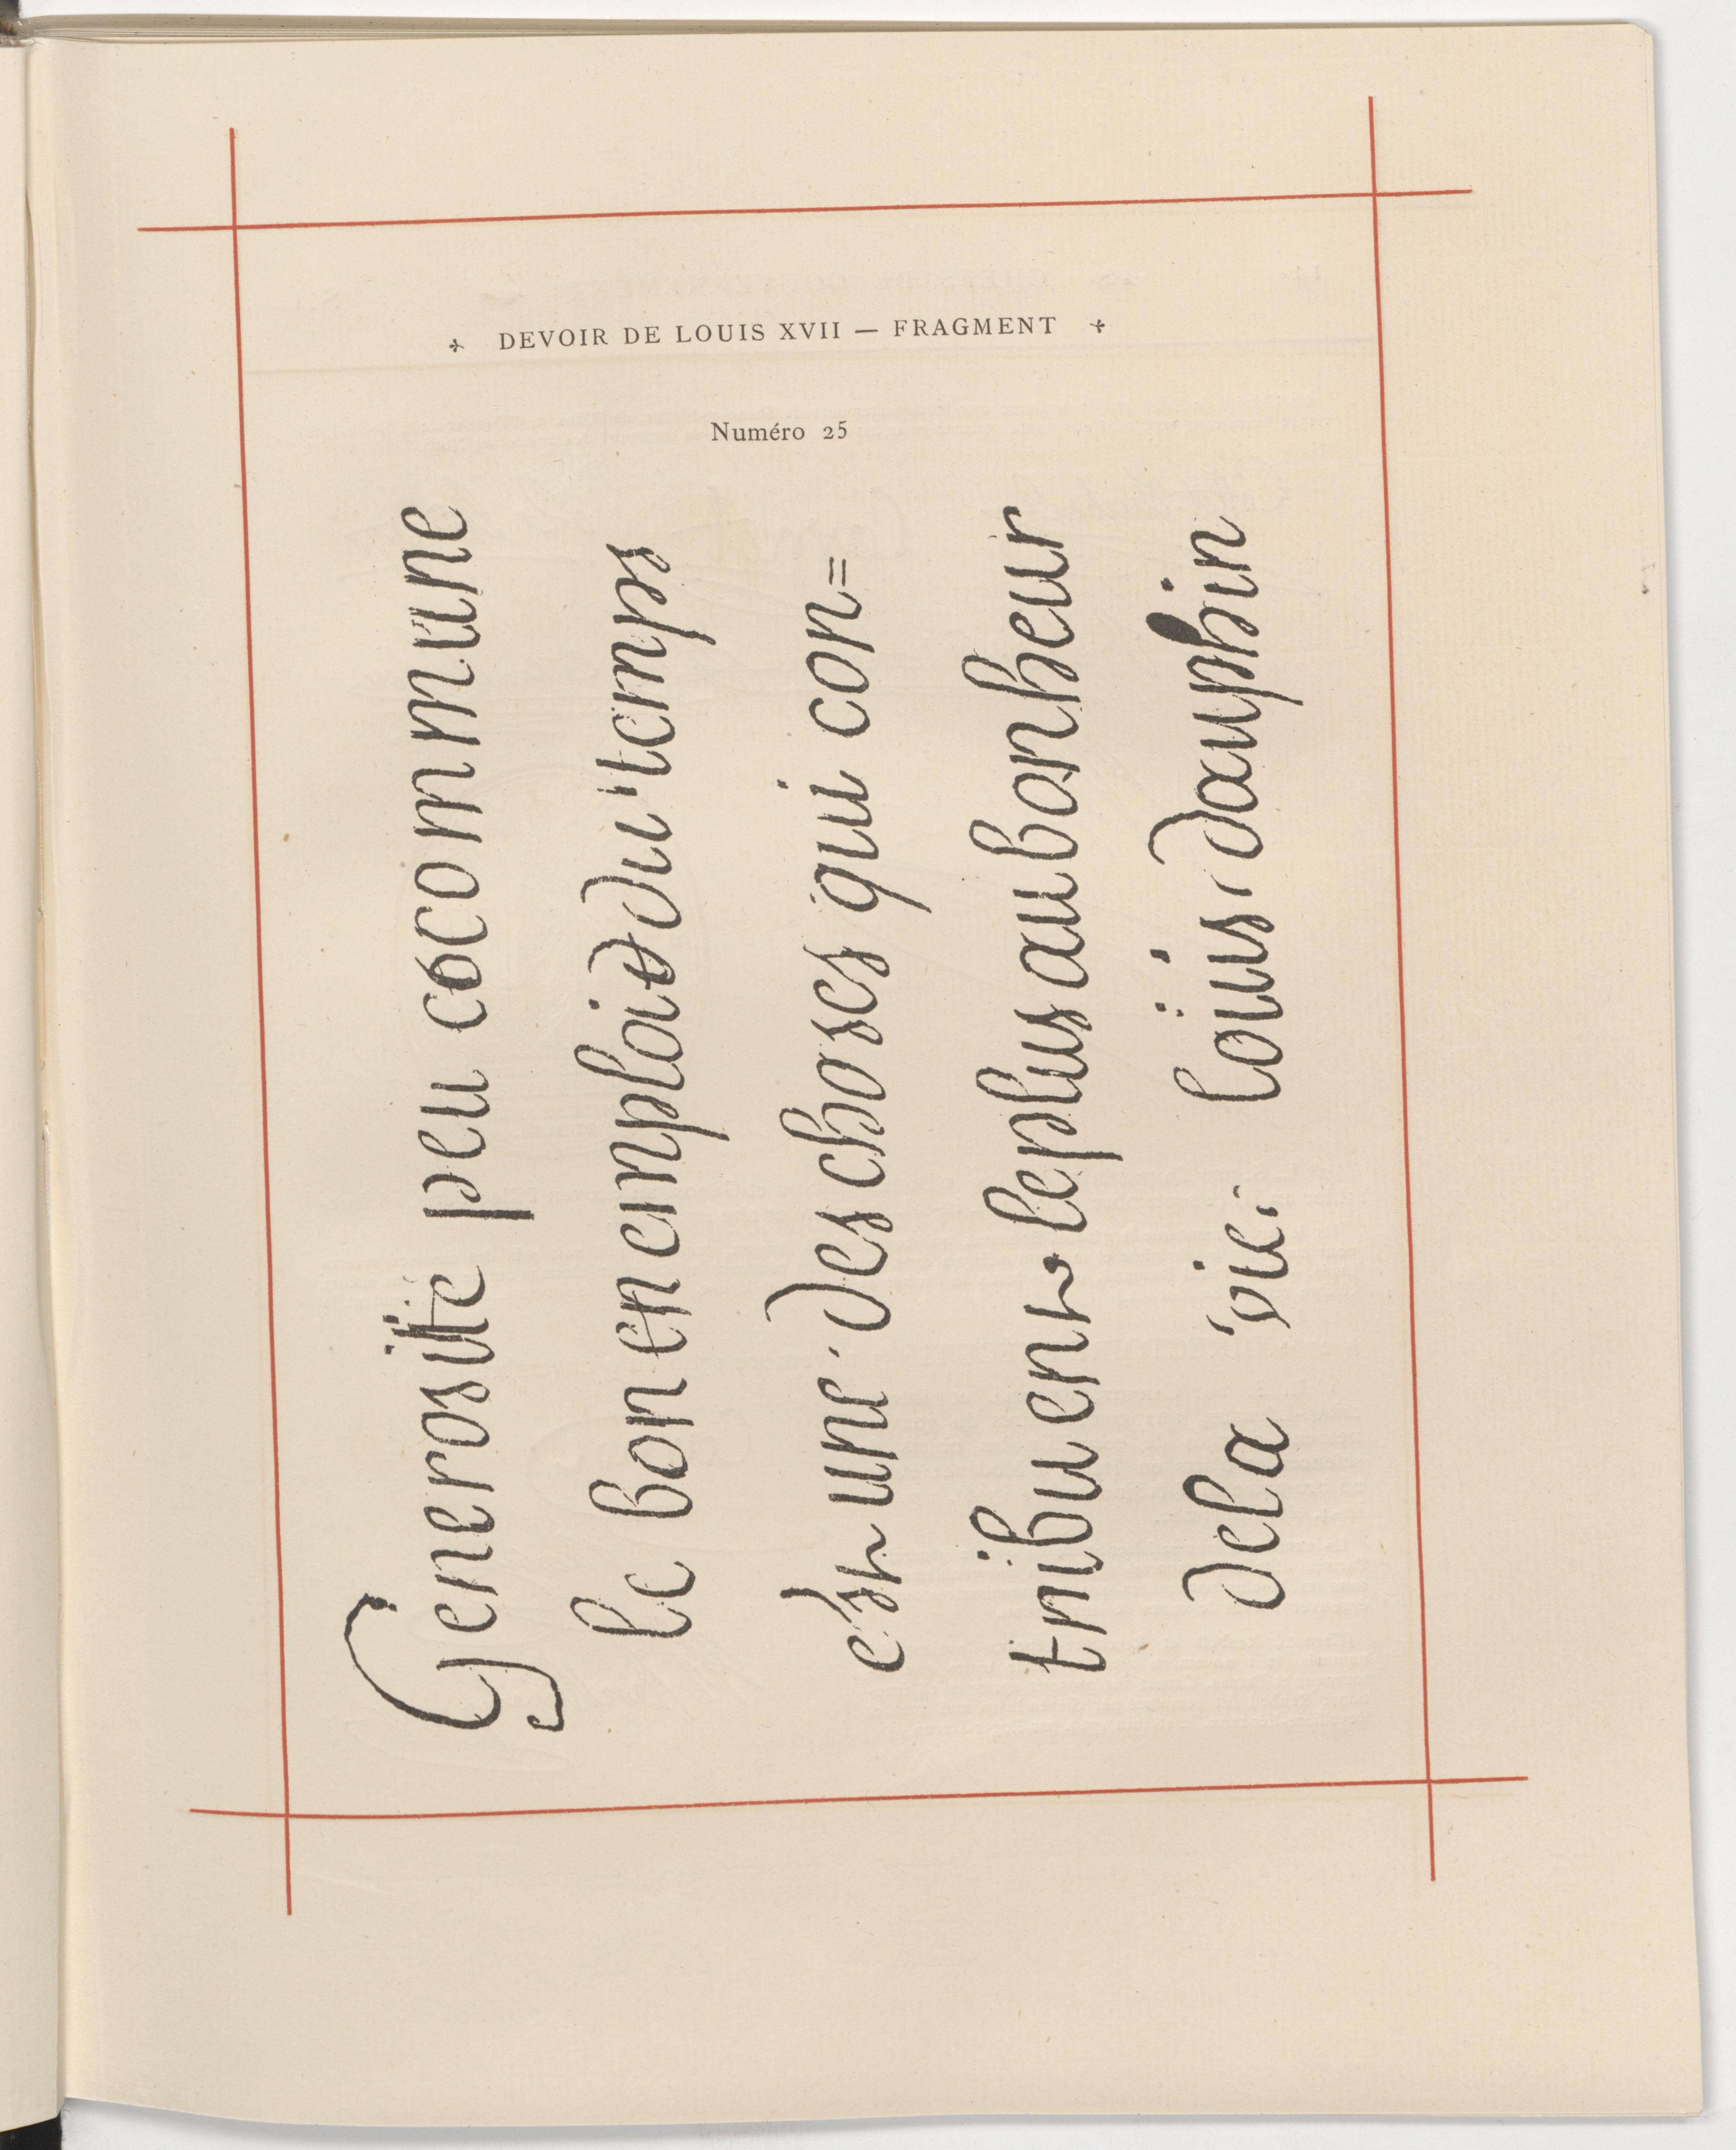 DEVOIR DE LOUIS XVII — FRAGMENT
Numéro 25
Generosite peu cocommune
le bon en emploi du temps
est une des choses qui con=
tribuent le plus au bonheur
dela vie. loüis, dauphin